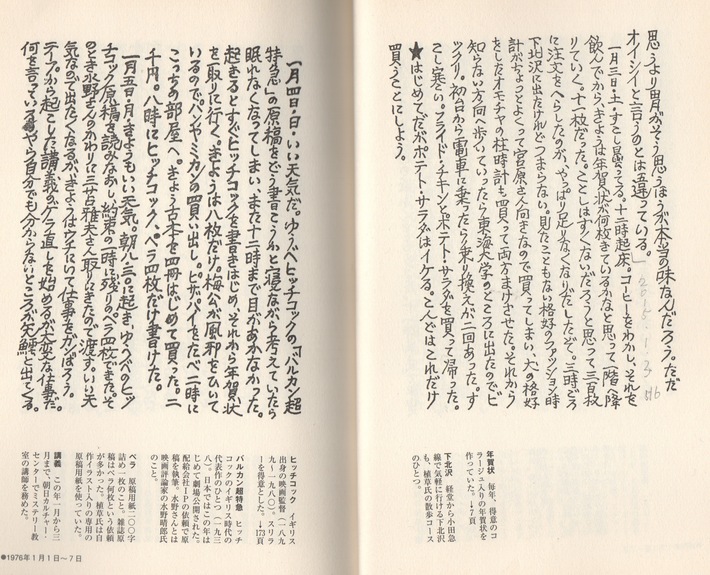 思うより男がそう思うほうが本当の味なんだろう。ただ
オイシイと言うのとは違っている。」
2016.1.3
516
一月三日・土・すこし曇ってる。十二時起床。コーヒーをわかし、それを
飲んでから、きょうは年賀状が何枚きているかなと思って一階へ降
りていく。十一枚だった。ことしはすくないだろうと思って三百枚
に注文をへらしたのが、やっぱり足りなくなりだしたぞ。三時ごろ
下北沢に出たけれどつまらない。見たこともない格好のファッション時
計がちょっとよくって宮原さん向きなので買ってしまい、犬の格好
をしたオモチャの柱時計も買って両方まけさせた。それから
知らない方向へ歩いていったら東海大学のところに出たのでビ
ックリ。初台から電車に乗ったら乗り換えが二回あった。す
こし寒い。フライド・チキンとポテト・サラダを買って帰った。
★はじめてだがポテト・サラダはイケる。こんどはこれだけ
買うことにしよう。
年賀状　毎年、得意のコ
ラージュ入りの年賀状を
作っていた。↓7頁
下北沢　経堂から小田急
線で気軽に行ける下北沢
も、植草氏の散歩コース
のひとつ。
一月四日・日・いい天気だ。ゆうべヒッチコックの「バルカン超
特急」の原稿をどう書こうかと寝ながら考えていたら
眠れなくなってしまい、また十二時まで目があかなかった。
起きるとすぐヒッチコックを書きはじめ、それから年賀状
を取りに行く。きょうは八枚だけ。梅公が風邪をひいて
いるのでパンやミカンの買い出し。ピザパイをたべ二時に
こっちの部屋へ。きょう古本を四冊はじめて買った。二
千円。八時にヒッチコック、ペラ四枚だけ書けた。
一月五日・月・きょうもいい天気。朝九・三〇に起き、ゆうべのヒッ
チコック原稿を読みなおし、約束の時に残りのペラ四枚できた。そ
のとき水野さんのかわりに三谷雅夫さん取りにきたので渡す。いい天
気なので出たくなるが、きょうはウチにいて仕事をガンばろう。
テープから起こした講義のゲラ直しを始めるが大変な仕事だ。
何を言っているやら自分でも分からないところが矢鱈に出てくる。
ヒッチコック　イギリス
出身の映画監督（一八九
九〜一九八〇）。スリラ
ーを得意とした。↓173頁
バルカン超特急　ヒッチ
コックのイギリス時代の
代表作のひとつ（一九三
八）。日本ではこの年は
じめて劇場公開された。
配給会社ＩＰの依頼で原
稿を執筆。水野さんとは
映画評論家の水野晴郎氏
のこと。
ペラ　原稿用紙二〇〇字
詰め一枚のこと。雑誌原
稿はペラ何枚という依頼
が多かった。植草氏は自
作イラスト入りの専用の
原稿用紙を使っていた。
講義　この年一月から三
月まで、朝日カルチャー・
センターでミステリー教
室の講師を務めた。
●1976年1月1日〜7日